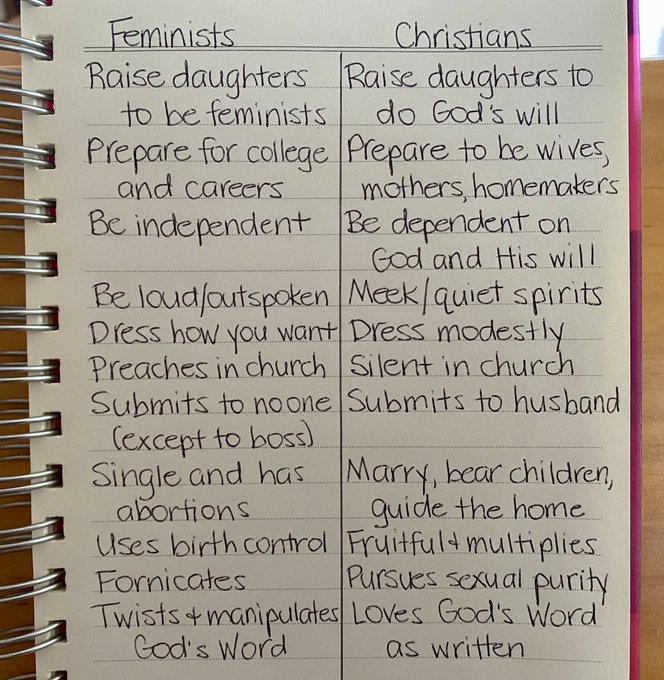 Feminists Christians
Raise daughters Raise daughters to
to be feminists do God's will
Prepare for college Prepare to be wives,
and careers mothers, homemakers
Be independent Be dependent on
God and His will
Be loud/outspoken Meek/quiet spirits
Dress how you want Dress modestly
Preaches in church Silent in church
Submits to no one Submits to husband
(except to boss)
Single and has Marry, bear children,
abortions guide the home
Uses birth control Fruitful & multiplies
Fornicates Pursues sexual purity
Twists & manipulates Loves God's Word
God's Word as written